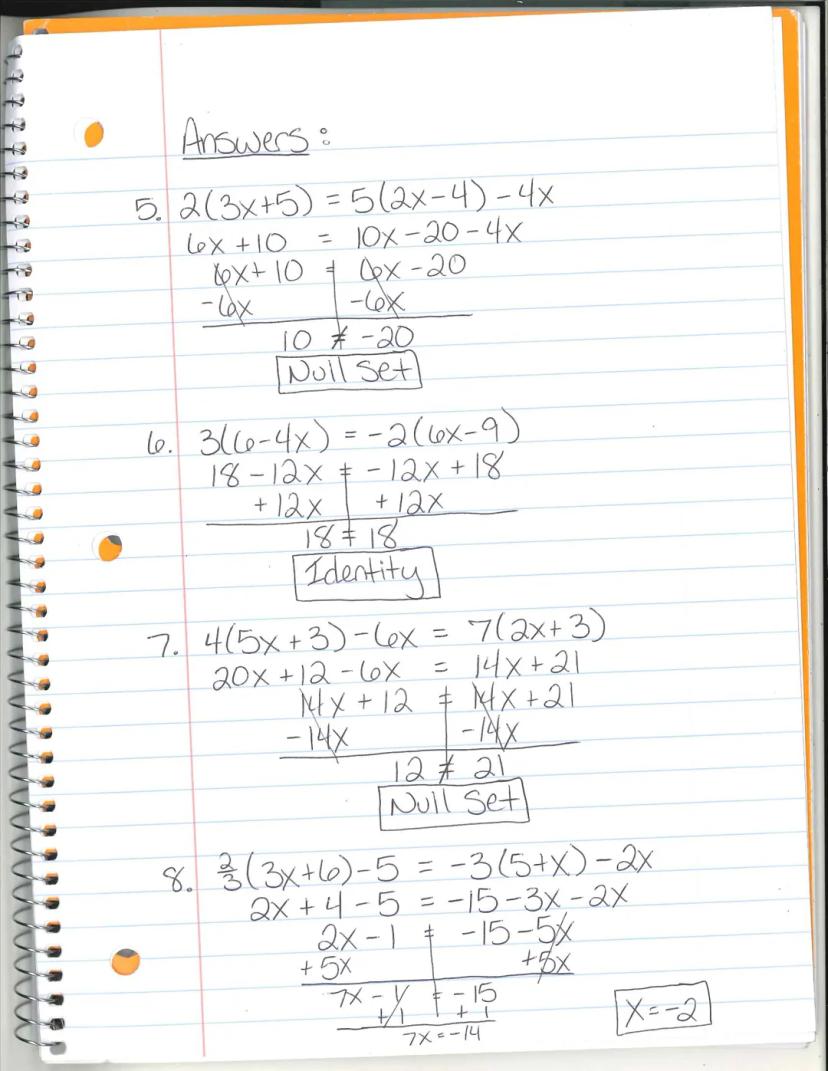 Answers:
5. 2(3x+5) = 5(2x-4) -4x
6x +10 = 10x-20-4x
6x+10 = 6x-20
-6x -6x
10 ≠ -20
Null Set
6. 3(6-4x) = -2(6x-9)
18-12x = -12x+18
+12x +12x
18 = 18
Identity
7. 4(5x+3)-6x = 7(2x+3)
20x+12-6x = 14x+21
14x+12 = 14x+21
-14x -14x
12 ≠ 21
Null Set
8. 2/3(3x+6)-5 = -3(5+x)-2x
2x+4-5 = -15-3x-2x
2x-1 = -15-5x
+5x +5x
7x-1 = -15
+1 +1
7x=-14
x=-2